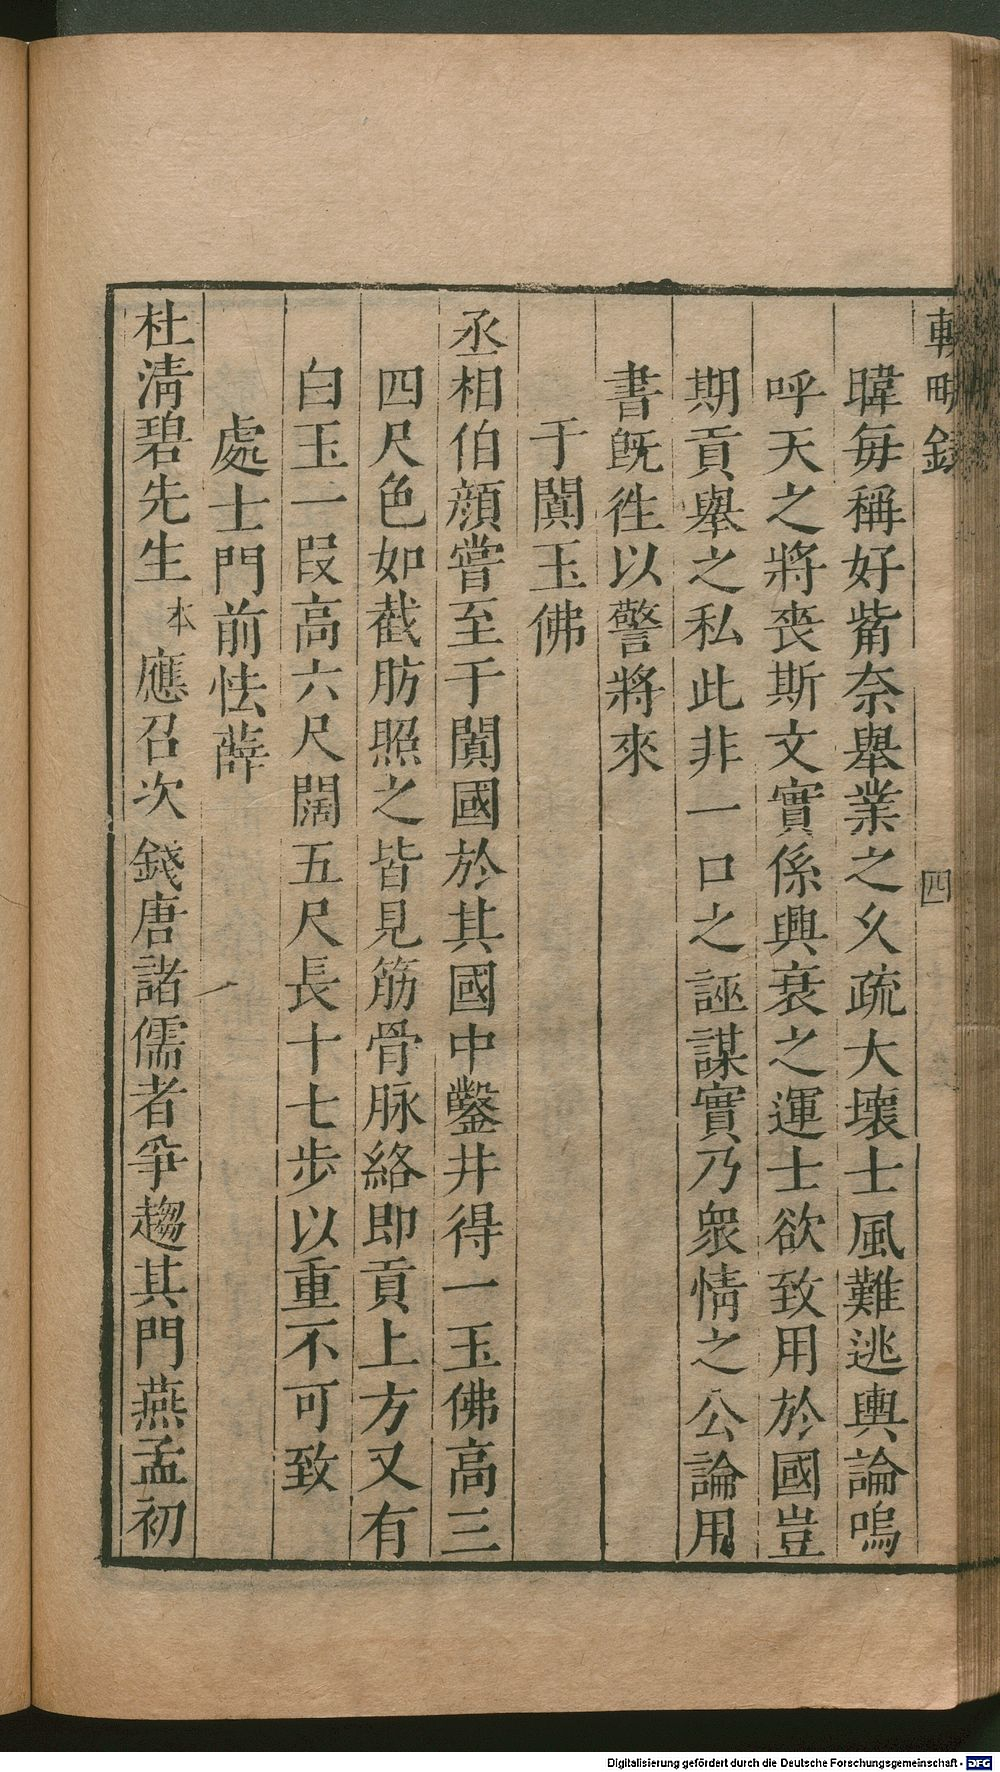 暐每稱好觜奈舉業之乆疏大壞士風難逃輿論嗚
呼天之將喪斯文實係興衰之運士欲致用於國豈
期貢舉之私此非一口之誣謀實乃衆情之公論用
書旣徃以警將來
于闐玉佛
丞相伯顔嘗至于闐國於其國中鑿井得一玉佛高三
四尺色如截肪照之皆見筋骨脉絡即貢上方又有
白玉一叚高六尺闊五尺長十七步以重不可致
處士門前怯薛
杜清碧先生本應召次錢唐諸儒者爭趨其門燕孟初
四
Digitalisierung gefördert durch die Deutsche Forschungsgemeinschaft - DFG